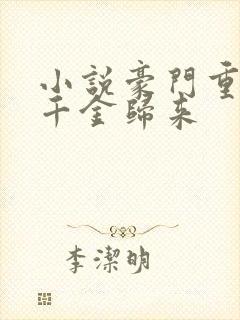 小說豪門重
千金歸來
李潔明